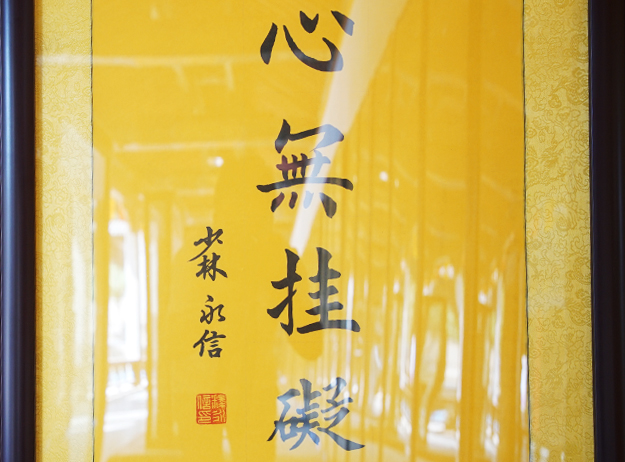 心無挂礙
少林永信